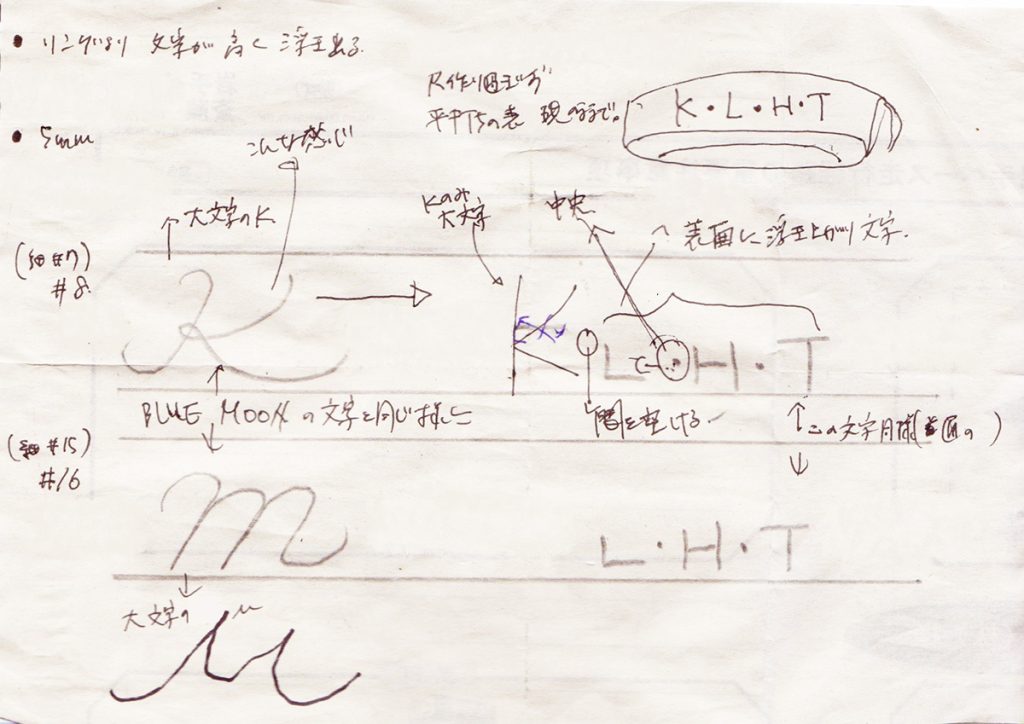 • リングより 文字が高く浮き出る
• 5mm
こんな感じ
平打ちの表現のままで。
K・L・H・T
↑大文字のK
Kのみ
大文字
中央
表面に浮き上がり文字.
(細 #7)
#8
K
K L・H・T
BLUE MOON の文字と同じ様に
間を空ける
この文字
(細 #15)
#16
m
L・H・T
大文字の
M